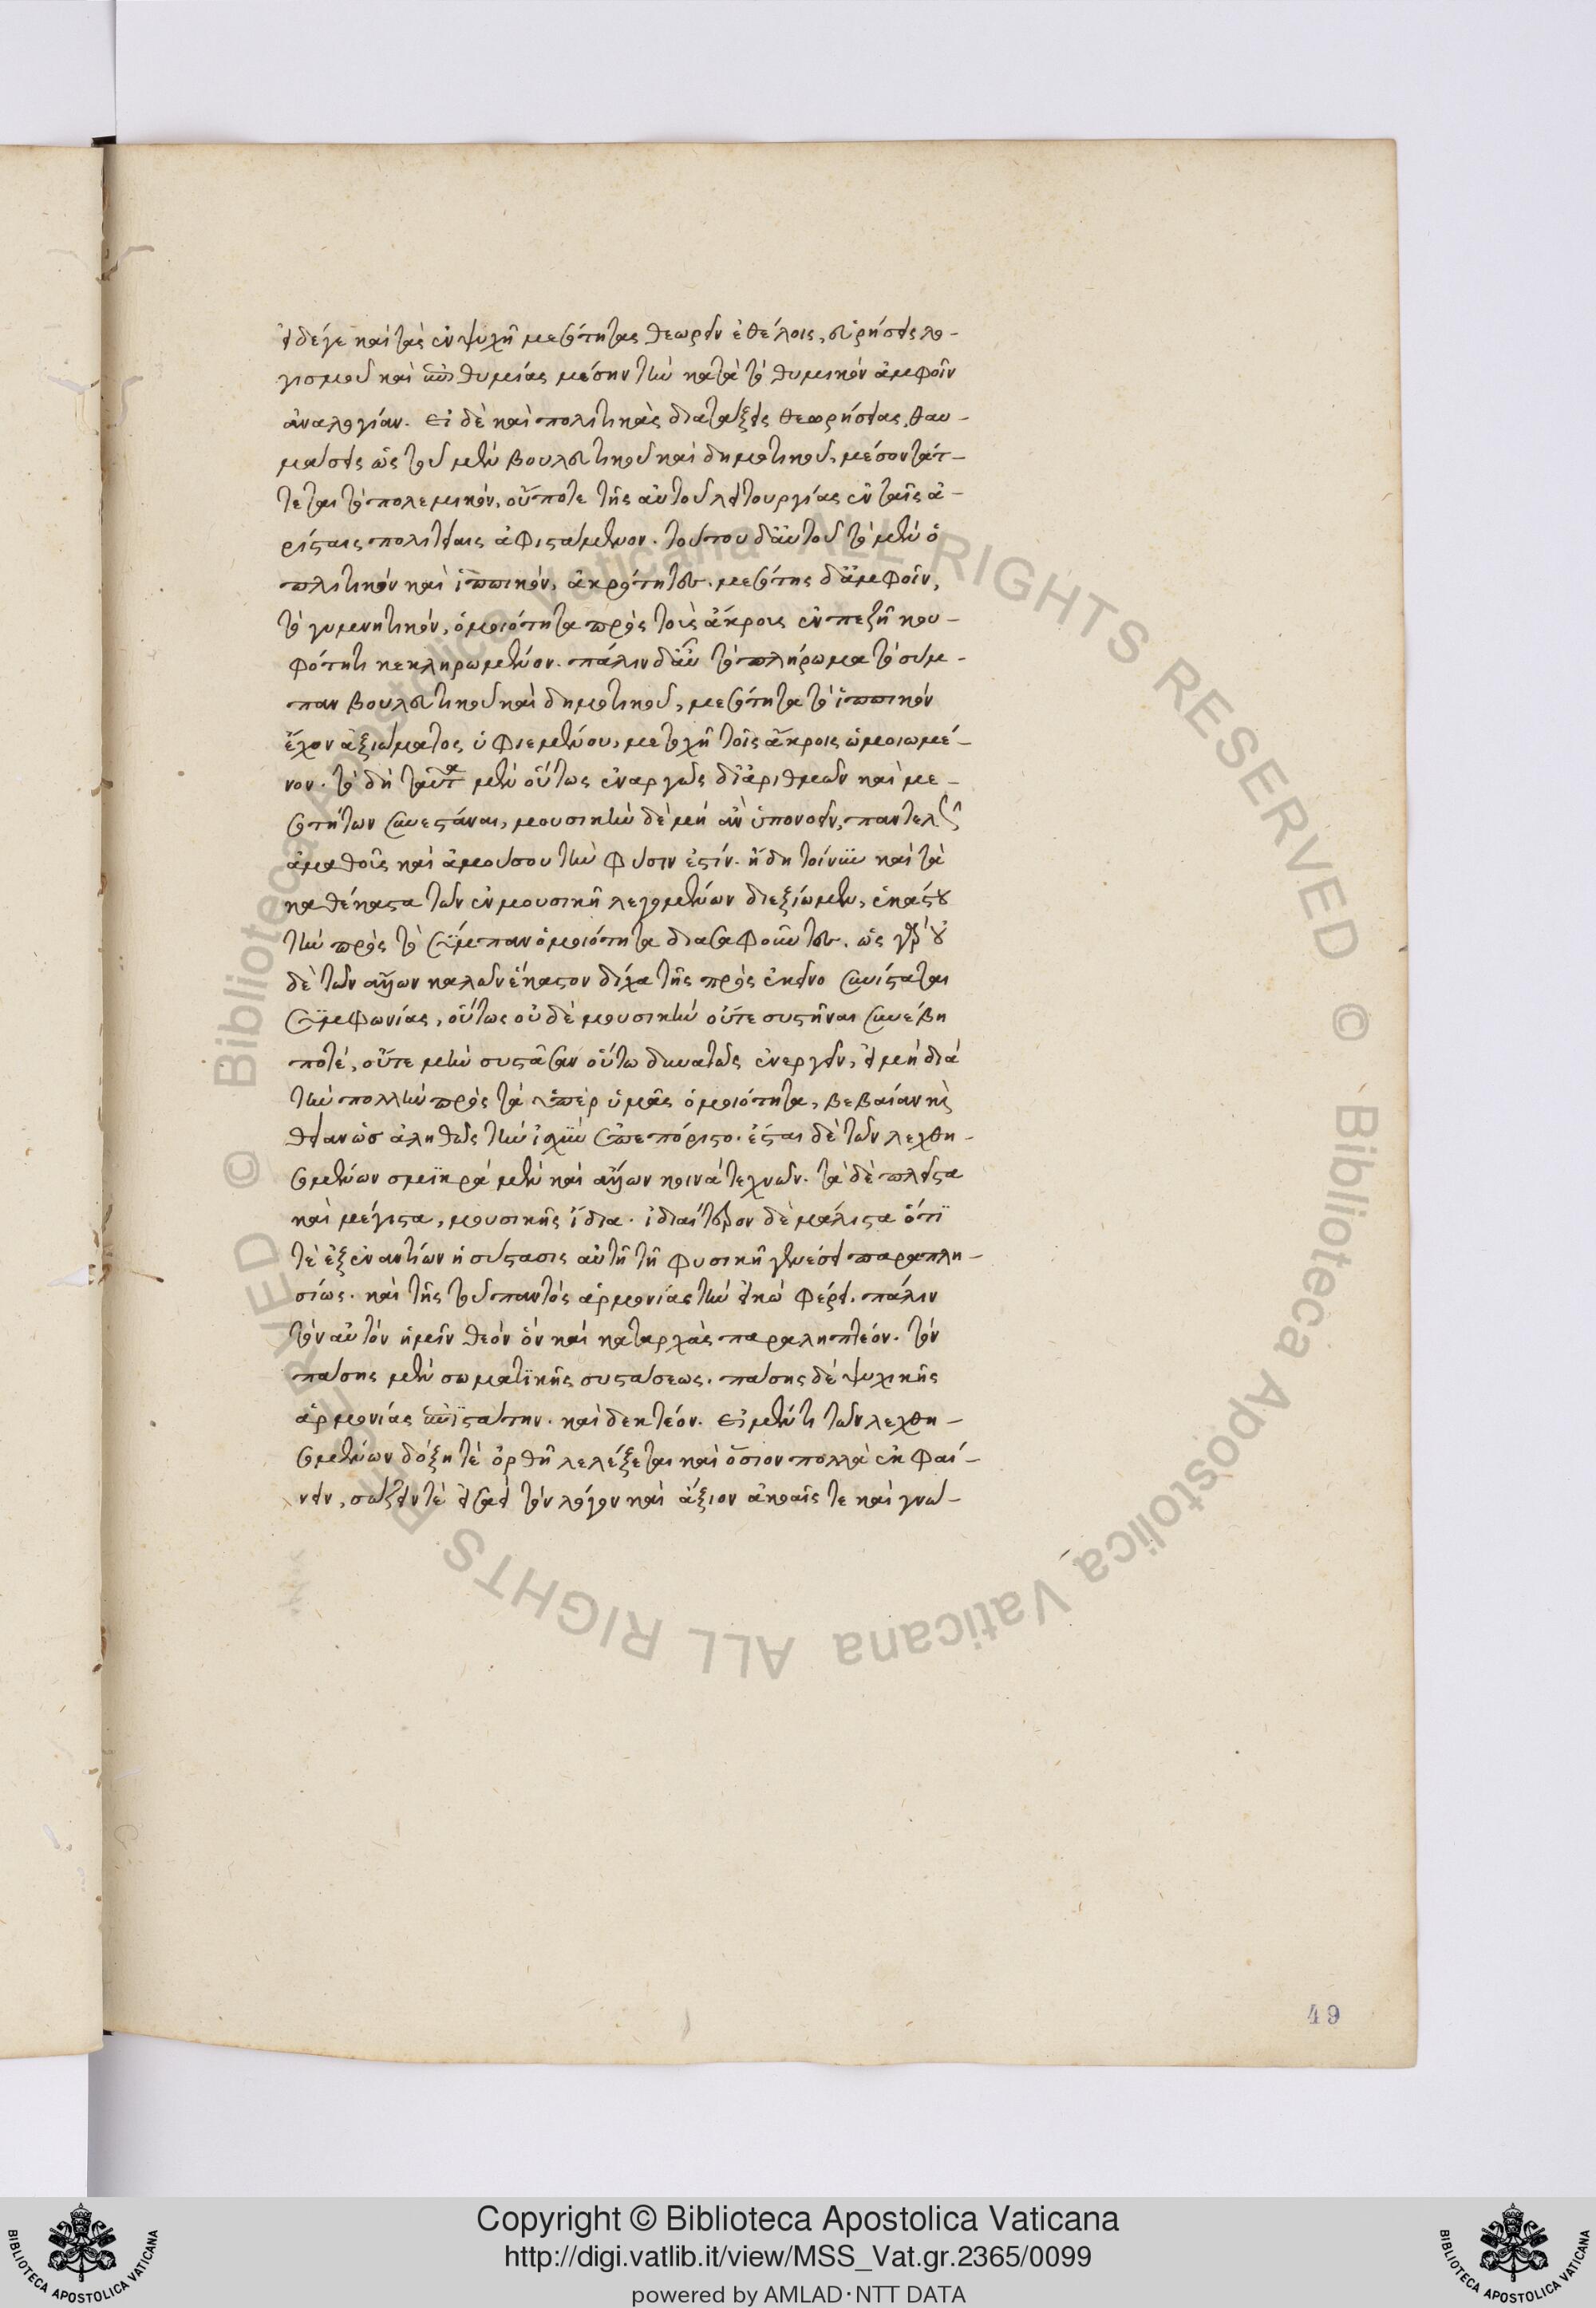 εἰ δέ γε καὶ τὰς ἐν ψυχῇ μεσότητας θεωρεῖν ἐθέλοις, εὑρήσεις λο-
γισμοῦ καὶ ἐπιθυμίας μέσην τὴν κατὰ τὸ θυμικὸν ἀμφοῖν
ἀναλογίαν. εἰ δὲ καὶ πολιτικὰς διατάξεις θεωρήσειας, θαυ-
μάσεις ὡς τοῦ μὲν βουλευτικοῦ καὶ δημοτικοῦ, μέσον τάτ-
τεται τὸ πολεμικόν, οὔποτε τῆς αὐτοῦ λειτουργίας ἐν ταῖς ἀ-
ρίσταις πολιτείαις ἀφιστάμενον. τούτου δ' αὐτοῦ τὸ μὲν ὁ
πλιτικὸν καὶ ἱππικόν, ἀκρότητες. μεσότης δ' ἀμφοῖν,
τὸ γυμνητικόν, ὁμοιότητα πρὸς τοὺς ἄκροις ἐν πεζῇ κου-
φότητι κεκληρωμένον. πάλιν δ' αὖ τὸ πλήρωμα τὸ σύμ-
παν βουλευτικοῦ καὶ δημοτικοῦ, μεσότητα τὸ ἱππικὸν
ἔχον ἀξιώματος ὑφιεμένου, μετοχῇ τοῖς ἄκροις ὡμοιωμέ-
νον. τὸ δὴ ταῦτα μὲν οὕτως ἐναργῶς δι' ἀριθμῶν καὶ με-
σοτήτων συνεστάναι, μουσικὴν δὲ μὴ ἂν ὑπονοεῖν, παντελῶς
ἀμαθοῦς καὶ ἀμούσου τὴν φύσιν ἐστίν. ἤδη τοίνυν καὶ τὰ
καθέκαστα τῶν ἐν μουσικῇ λεγομένων διεξίωμεν, ἑκάστου
τὴν πρὸς τὸ σύμπαν ὁμοιότητα διασαφοῦντες. ὡς γὰρ οὐ
δὲ τῶν ἄλλων καλῶν ἕκαστον δίχα τῆς πρὸς ἐκεῖνο συνίσταται
συμφωνίας, οὕτως οὐδὲ μουσικὴν οὔτε συστῆναι συνέβη
ποτέ, οὔτε μὴν συστᾶσαν οὕτω δυνατῶς ἐνεργεῖν, εἰ μὴ διὰ
τὴν πολλὴν πρὸς τὰ ὑπὲρ ὑμᾶς ὁμοιότητα, βεβαίαν κἀ
θείαν ὡσ ἀληθῶς τὴν ἰσχὺν ἐπεπόριστο. ἔσται δὲ τῶν λεχθη-
σομένων σμικρὰ μὲν καὶ ἄλλων κοινὰ τεχνῶν. τὰ δὲ πλεῖστα
καὶ μέγιστα, μουσικῆς ἴδια. ἰδιαίτερον δὲ μάλιστα ὅτι
τὲ ἐξ ἐναντίων ἡ σύστασις αὐτῇ τῇ φυσικῇ γενέσει παραπλη-
σίως. καὶ τῆς τοῦ παντὸς ἁρμονίας τὴν εἰκὼ φέρει. πάλιν
τὸν αὐτὸν ἡμῖν θεὸν ὃν καὶ καταρχὰς παραληπτέον. τὸν
πάσης μὲν σωματικῆς συστάσεως. πάσης δὲ ψυχικῆς
ἁρμονίας ἐπιστάτην. καὶ δεκτέον. εἰ μέν τι τῶν λεχθη-
σομένων δόξῃ τὲ ὀρθῇ λελέξεται καὶ ὅσιον πολλὰ ἐκφαί-
νειν, σώζειν τὲ εἰσαεὶ τὸν λόγον καὶ ἄξιον ἀκοαῖς τε καὶ γνω-
49
Copyright © Biblioteca Apostolica Vaticana
http://digi.vatlib.it/view/MSS_Vat.gr.2365/0099
powered by AMLAD·NTT DATA